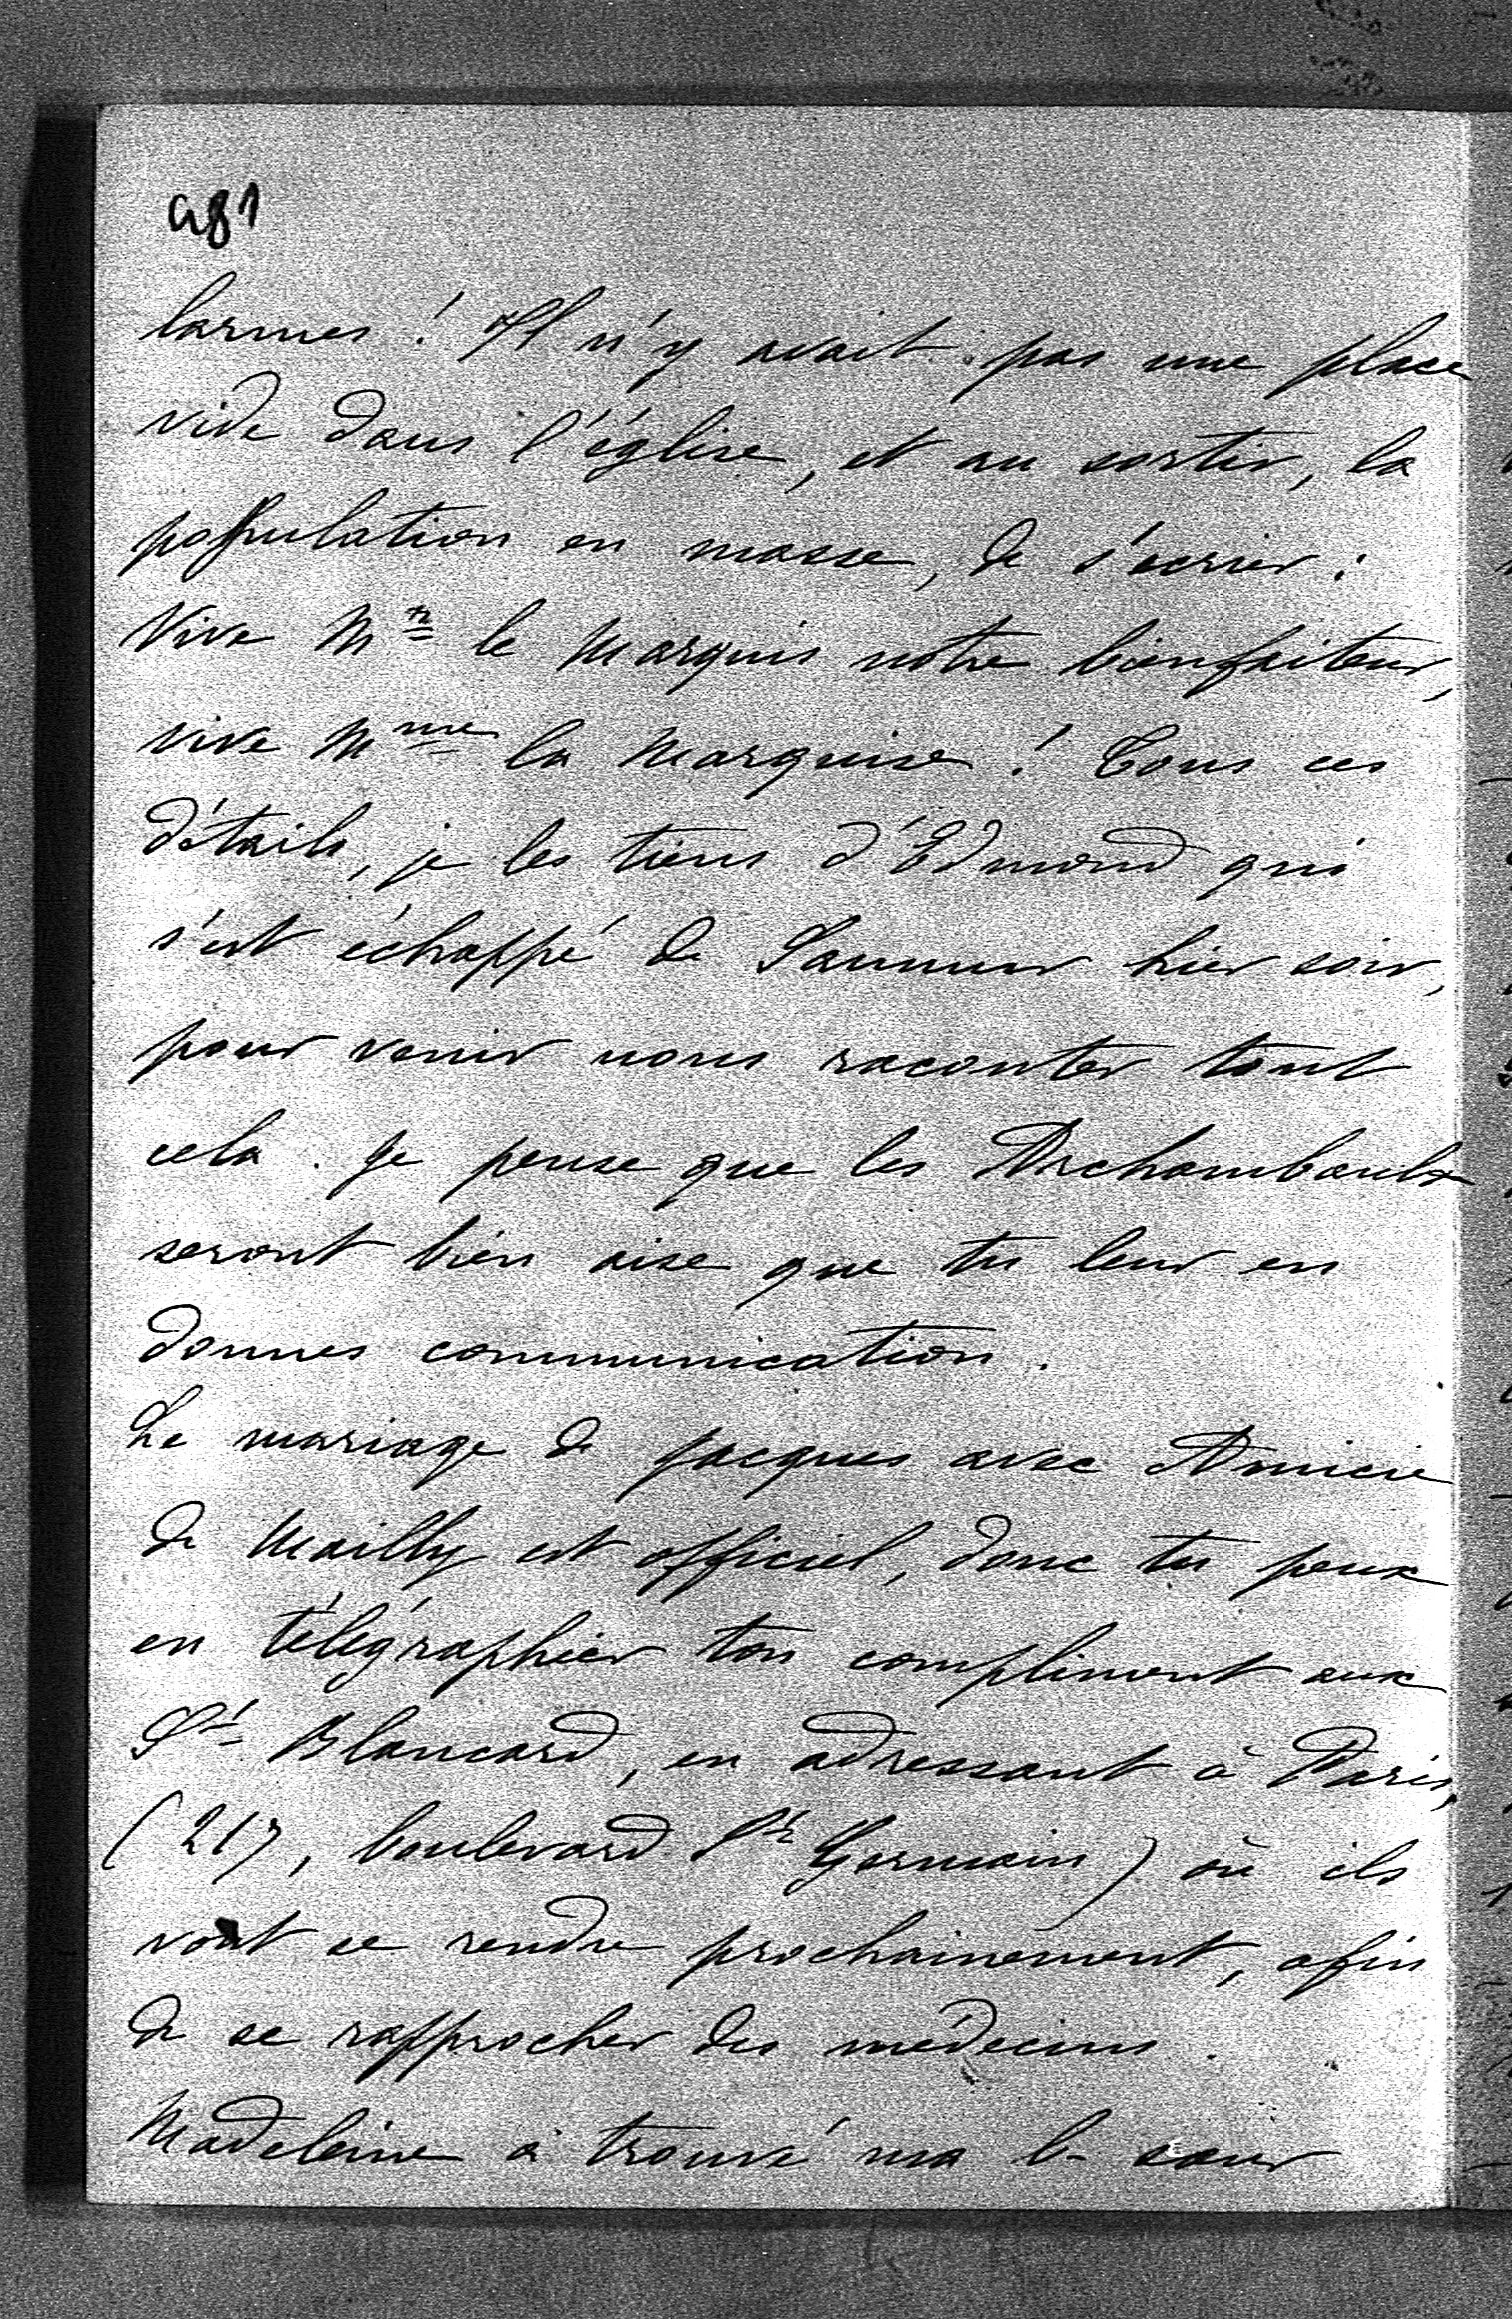 a81
larmes ! Il n'y avait pas une place
vide dans l'église, et au sortir, la
population en masse, de s'écrier :
Vive Mr le Marquis notre bienfaiteur,
vive Mme la Marquise ! Tous ces
détails, je les tiens d'Edmond qui
s'est échappé de Saumur hier soir,
pour venir nous raconter tout
cela. Je pense que les Archambault
seront bien aise que tu leur en
donnes communication.
Le mariage de Jacques avec Amicie
de Mailly est officiel, donc tu peux
en télégraphier ton compliment aux
St Blancard, en adressant à Paris,
(217, boulevard St Germain) où ils
vont se rendre prochainement, afin
de se rapprocher des médecins.
Madeleine a trouvé ma b- sœur